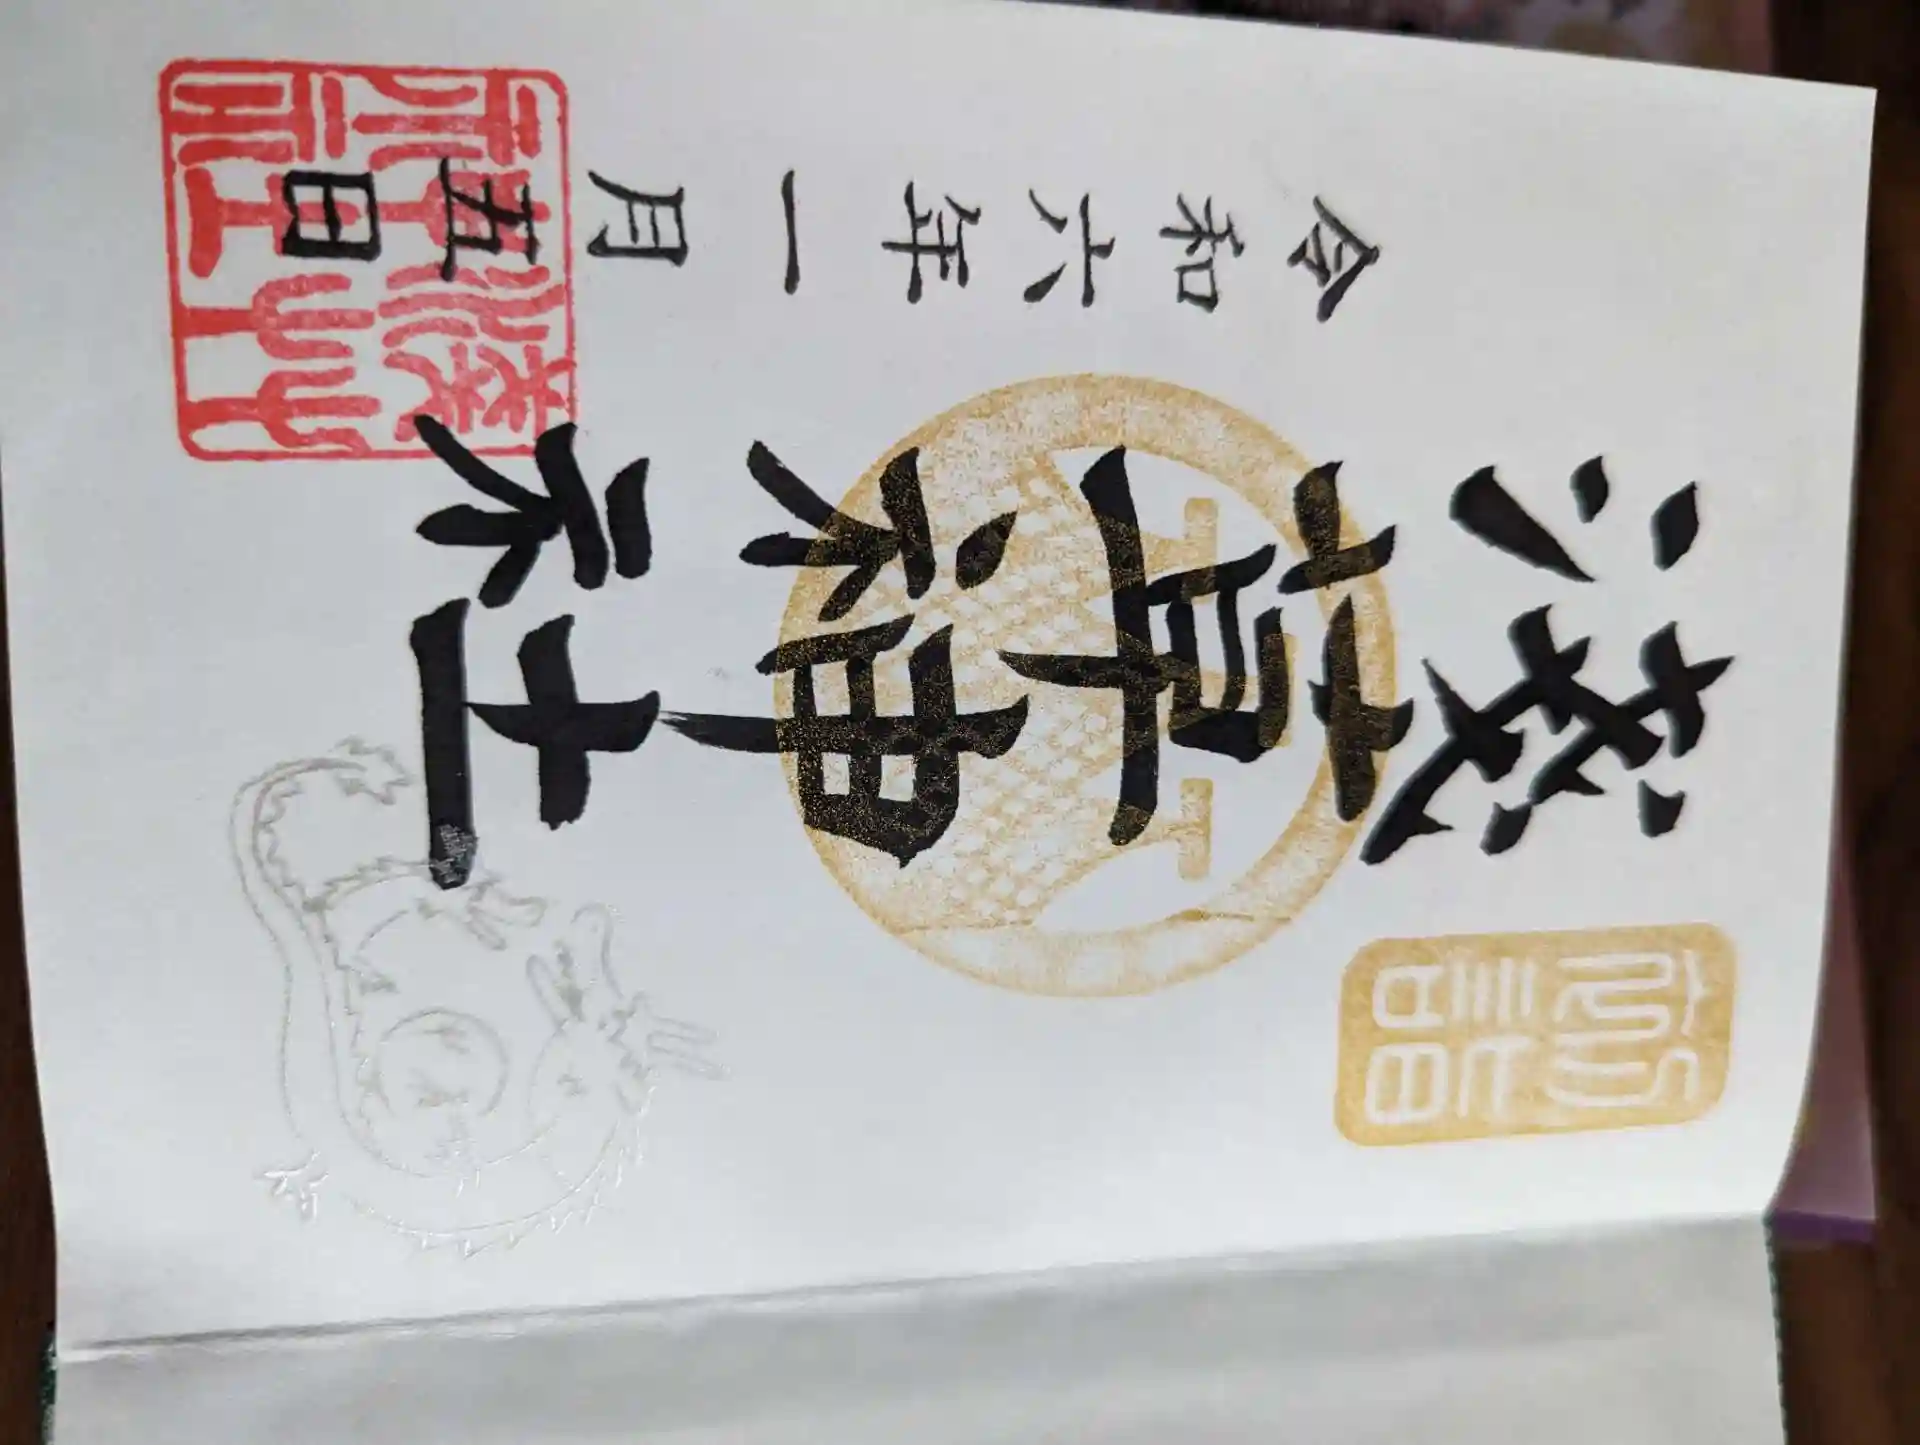 淺草神社
令和六年一月五日
淺草神社